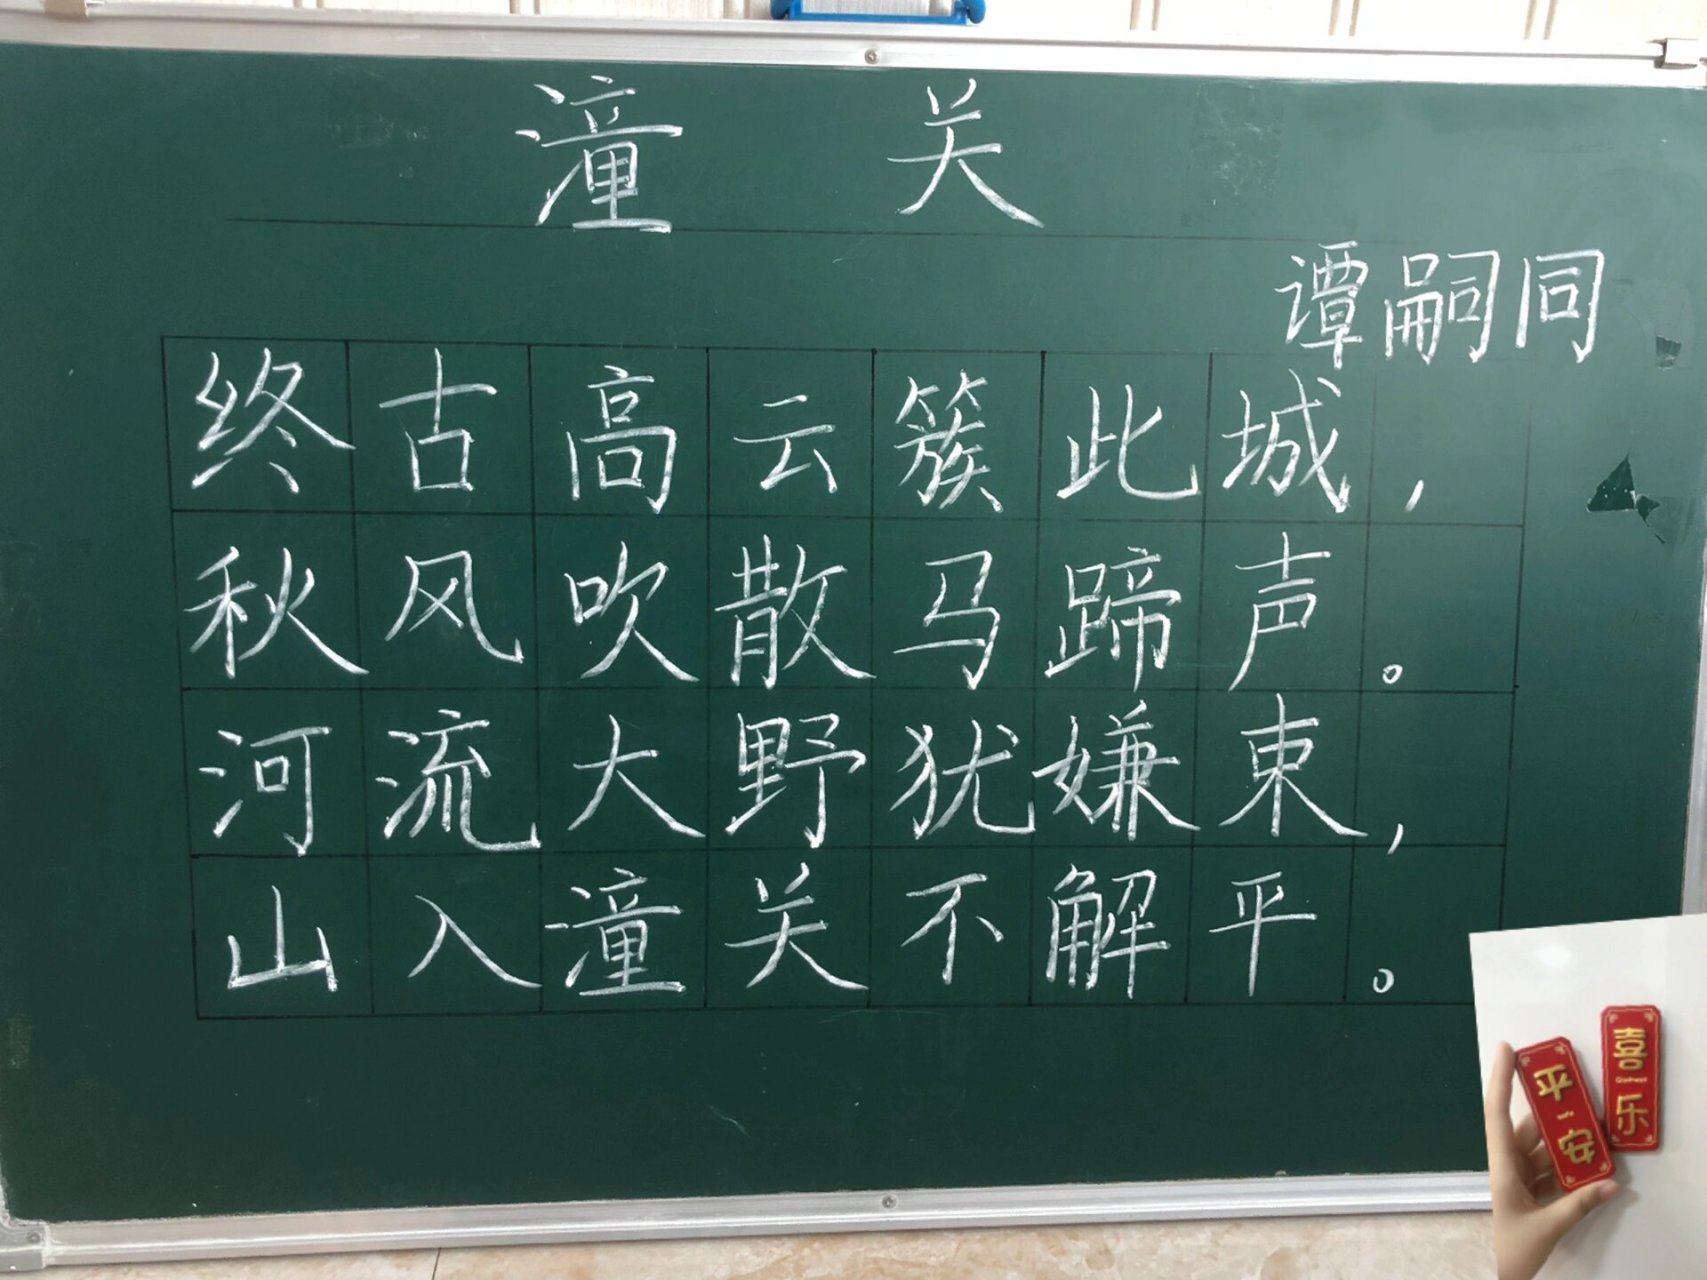 潼关
谭嗣同
终古高云簇此城，
秋风吹散马蹄声。
河流大野犹嫌束，
山入潼关不解平。
平安
喜乐